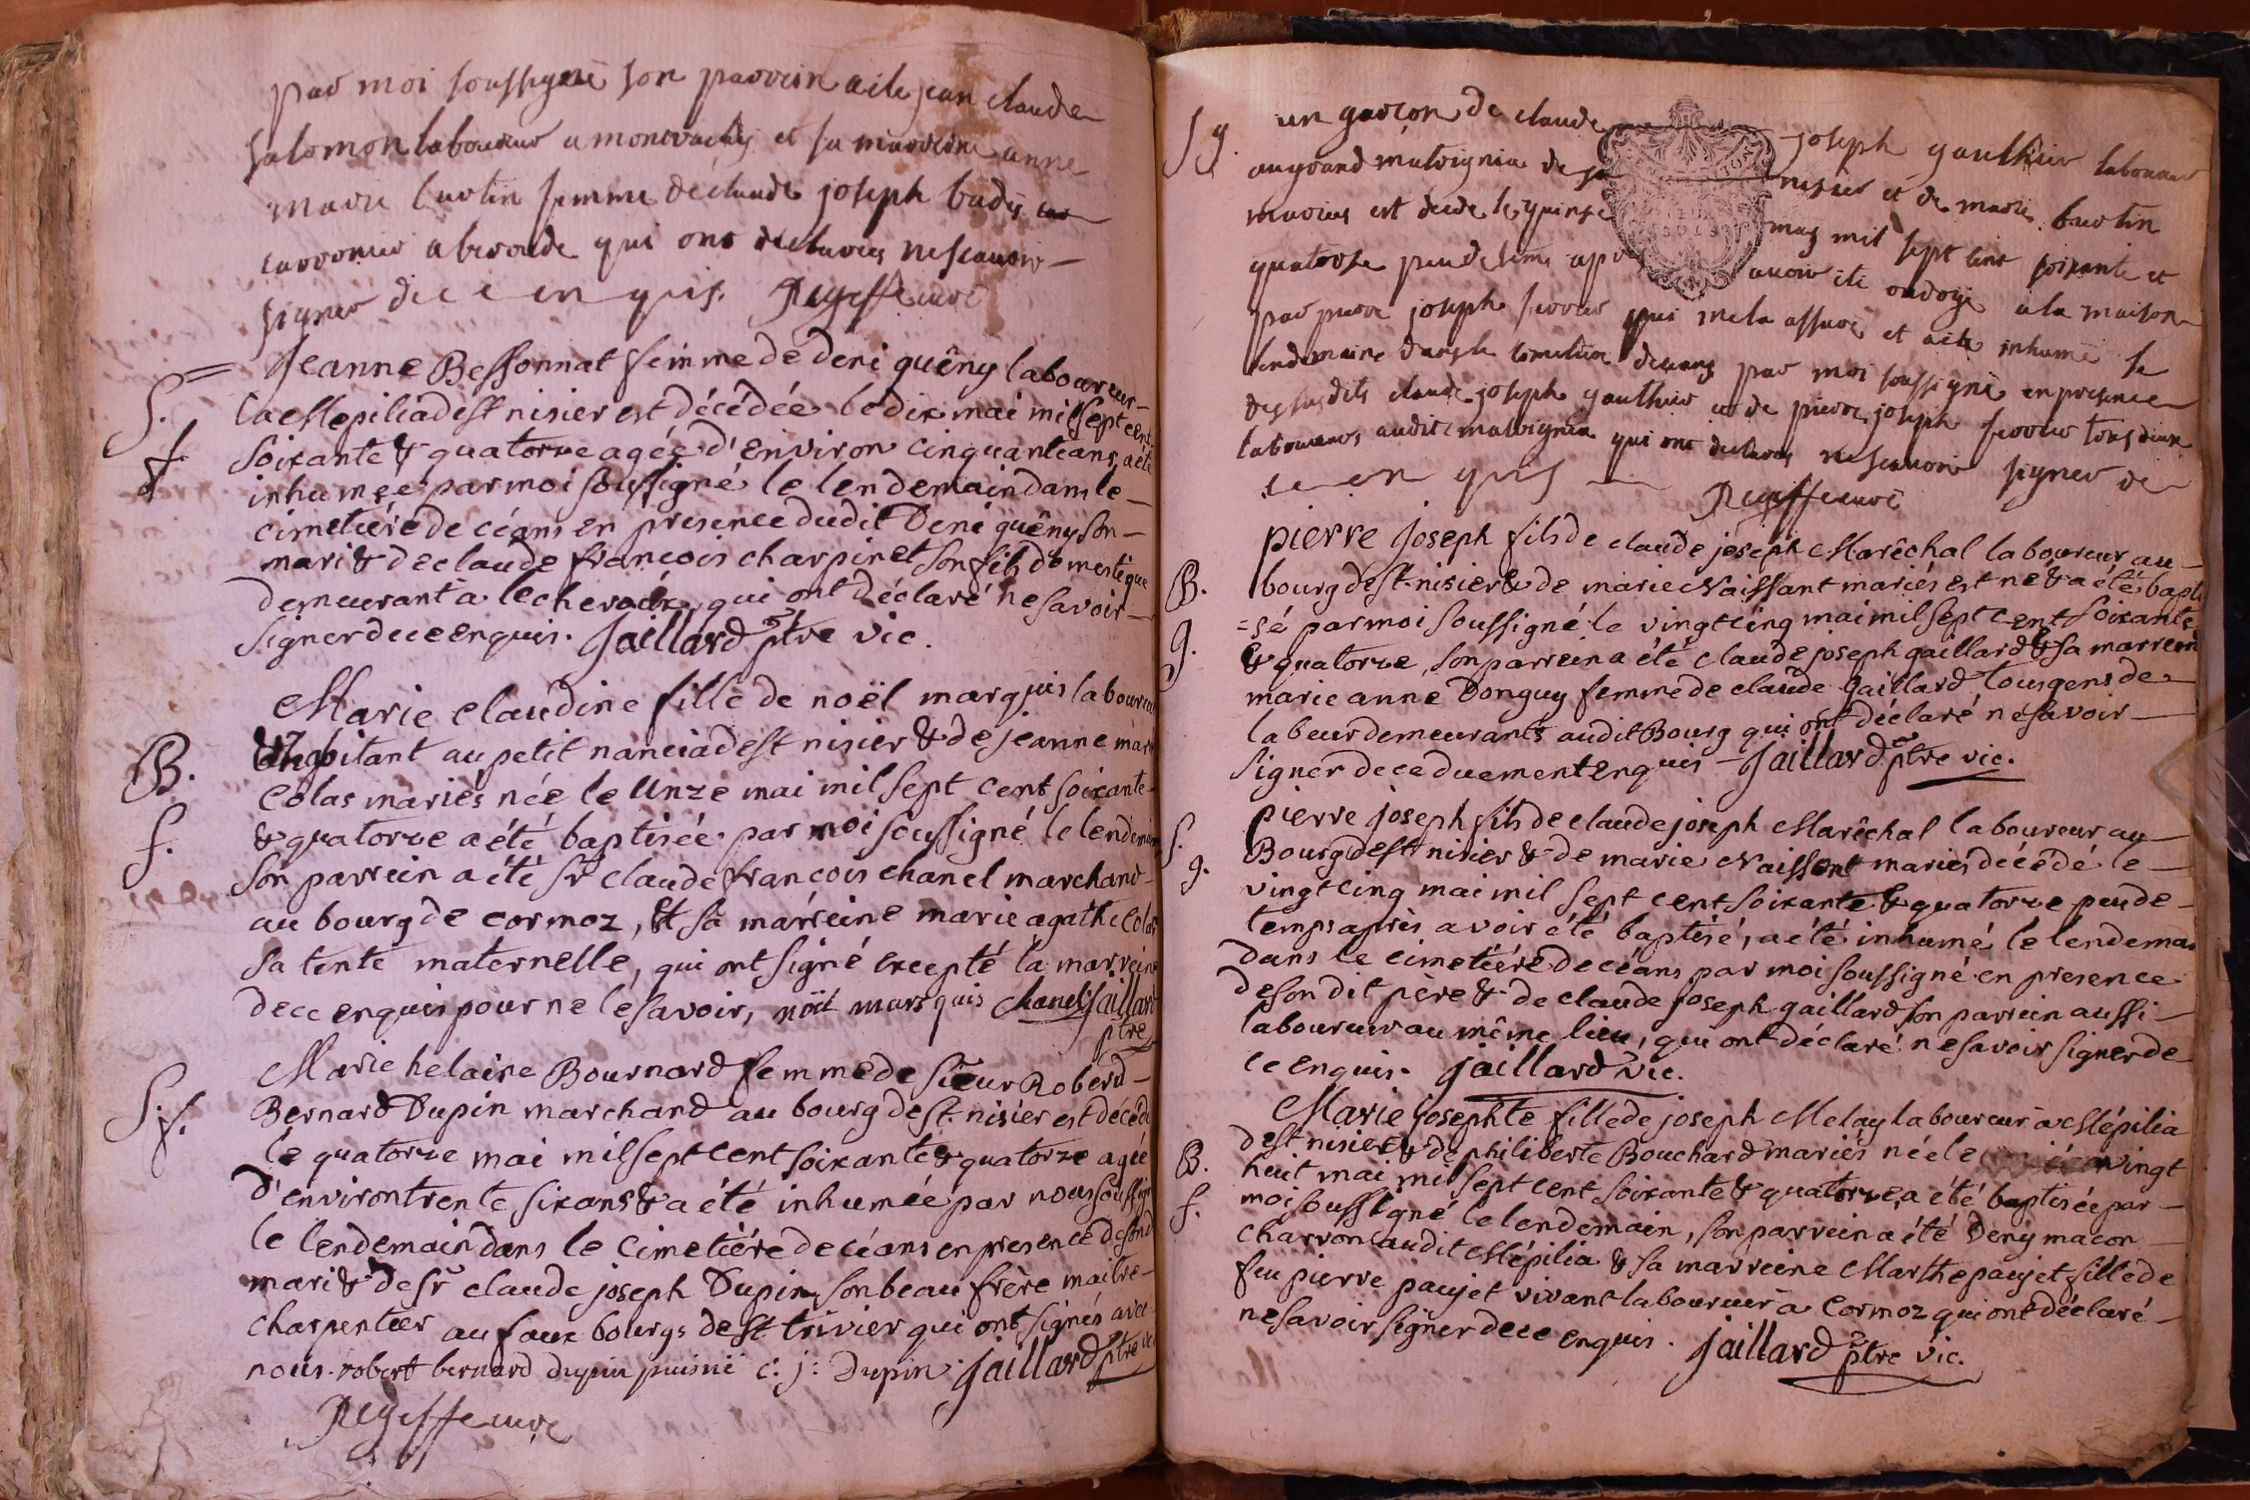 par moi soussigné son parrein a ete jean claude
salomon laboureur a montvachey et sa marreine anne
marie burtin femme de claude joseph budin
charronier a beroude qui ont declarez ne scavoir
signer de ce enquis. Reyeffeuré
S.
f.
Jeanne Bessonnat femme de deni quêny laboureur
a Mepilia de st nisier est décédée le dix mai mil sept cent
soixante & quatorze agée d'environ cinquante ans, a été
inhumée par moi soussigné le lendemain dans le
cimetiére de céans en presence dudit Deni quêny son
mari & de claude françois charpinet son fils domestique
demeurant a lecheroux, qui ont déclaré ne savoir
signer de ce enquis. Gaillard ptre vic.
B.
f.
Marie claudine fille de noël marquis laboureur
habitant au petit nancia de st nisier & de jeanne marie
colas mariés née le Unze mai mil sept cent soixante
& quatorze a été baptisée par moi soussigné le lendemain
son parrein a été sr claude françois chanel marchand
au bourg de cormoz, & sa marreine marie agathe colas
sa tente maternelle, qui ont signé excepté la marreine
de ce enquis pour ne le savoir, noël marquis chanel Gaillard
ptre
S.
f.
Marie helaine Bournard femme de Sieur Roberd
Bernard Dupin marchand au bourg de st nisier est décédée
le quatorze mai mil sept cent soixante & quatorze agée
d'environ trente six ans & a été inhumée par nous soussigné
le lendemain dans le cimetiére de céans en presence de son d
mari & de sr claude joseph Dupin son beau frère maitre
charpentier au faux bourgs de st trivier qui ont signés avec
nous. robert bernard dupin puisné c: j: Dupin Gaillard ptre vic
Reyeffeuré
S g.
un garcon de claude joseph gaulthier laboureur
au grand malvignia de st nizier et de marie burtin
mariez est decede le quinze may mil sept cent soixante et
quatorze peu de tems apres avoir ete ondoyé a la maison
par pierre joseph ferrier qui me la assuré et a ete inhumé le
lendemaine dans le cimetiere de ceans par moi soussigné en presence
des susdits claude joseph gaulthier et de pierre joseph ferrier tous deux
laboureurs audit malvignia qui ont declarez ne scavoir signer de
ce enquis Reyeffeuré
B.
g.
pierre joseph fils de claude joseph Marêchal laboureur au
bourg de st nisier & de marie Naissant mariés est né & a été bapti
=sé par moi soussigné le vingt cinq mai mil sept cent soixante
& quatorze, son parrein a été claude joseph gaillard & sa marreine
marie anne Donguy femme de claude Gaillard tous gens de
labeur demeurants audit Bourg qui ont déclaré ne savoir
signer de ce duement enquis Gaillard ptre vic.
S.
g.
pierre joseph fils de claude joseph Marêchal laboureur au
Bourg de st nisier & de marie Naissent mariés décédé le
vingt cinq mai mil sept cent soixante & quatorze peu de
temps aprés avoir été baptisé, a été inhumé le lendemain
dans le cimetiére de céans par moi soussigné en presence
de son dit père & de claude joseph gaillard son parrein aussi
laboureur au même lieu, qui ont déclaré ne savoir signer de
ce enquis. Gaillard vic.
B.
f.
Marie josephte fille de joseph Melay laboureur a Mépilia
de st nisier & de philiberte Bouchard mariés née le vingt
huit mai mil sept cent soixante & quatorze, a été baptisée par
moi soussigné le lendemain, son parrein a été Deny macon
charron audit Mépilia & sa marreine Marthe paujet fille de
feu pierre paujet vivant laboureur a Cormoz qui ont déclaré
ne savoir signer de ce enquis. Gaillard ptre vic.